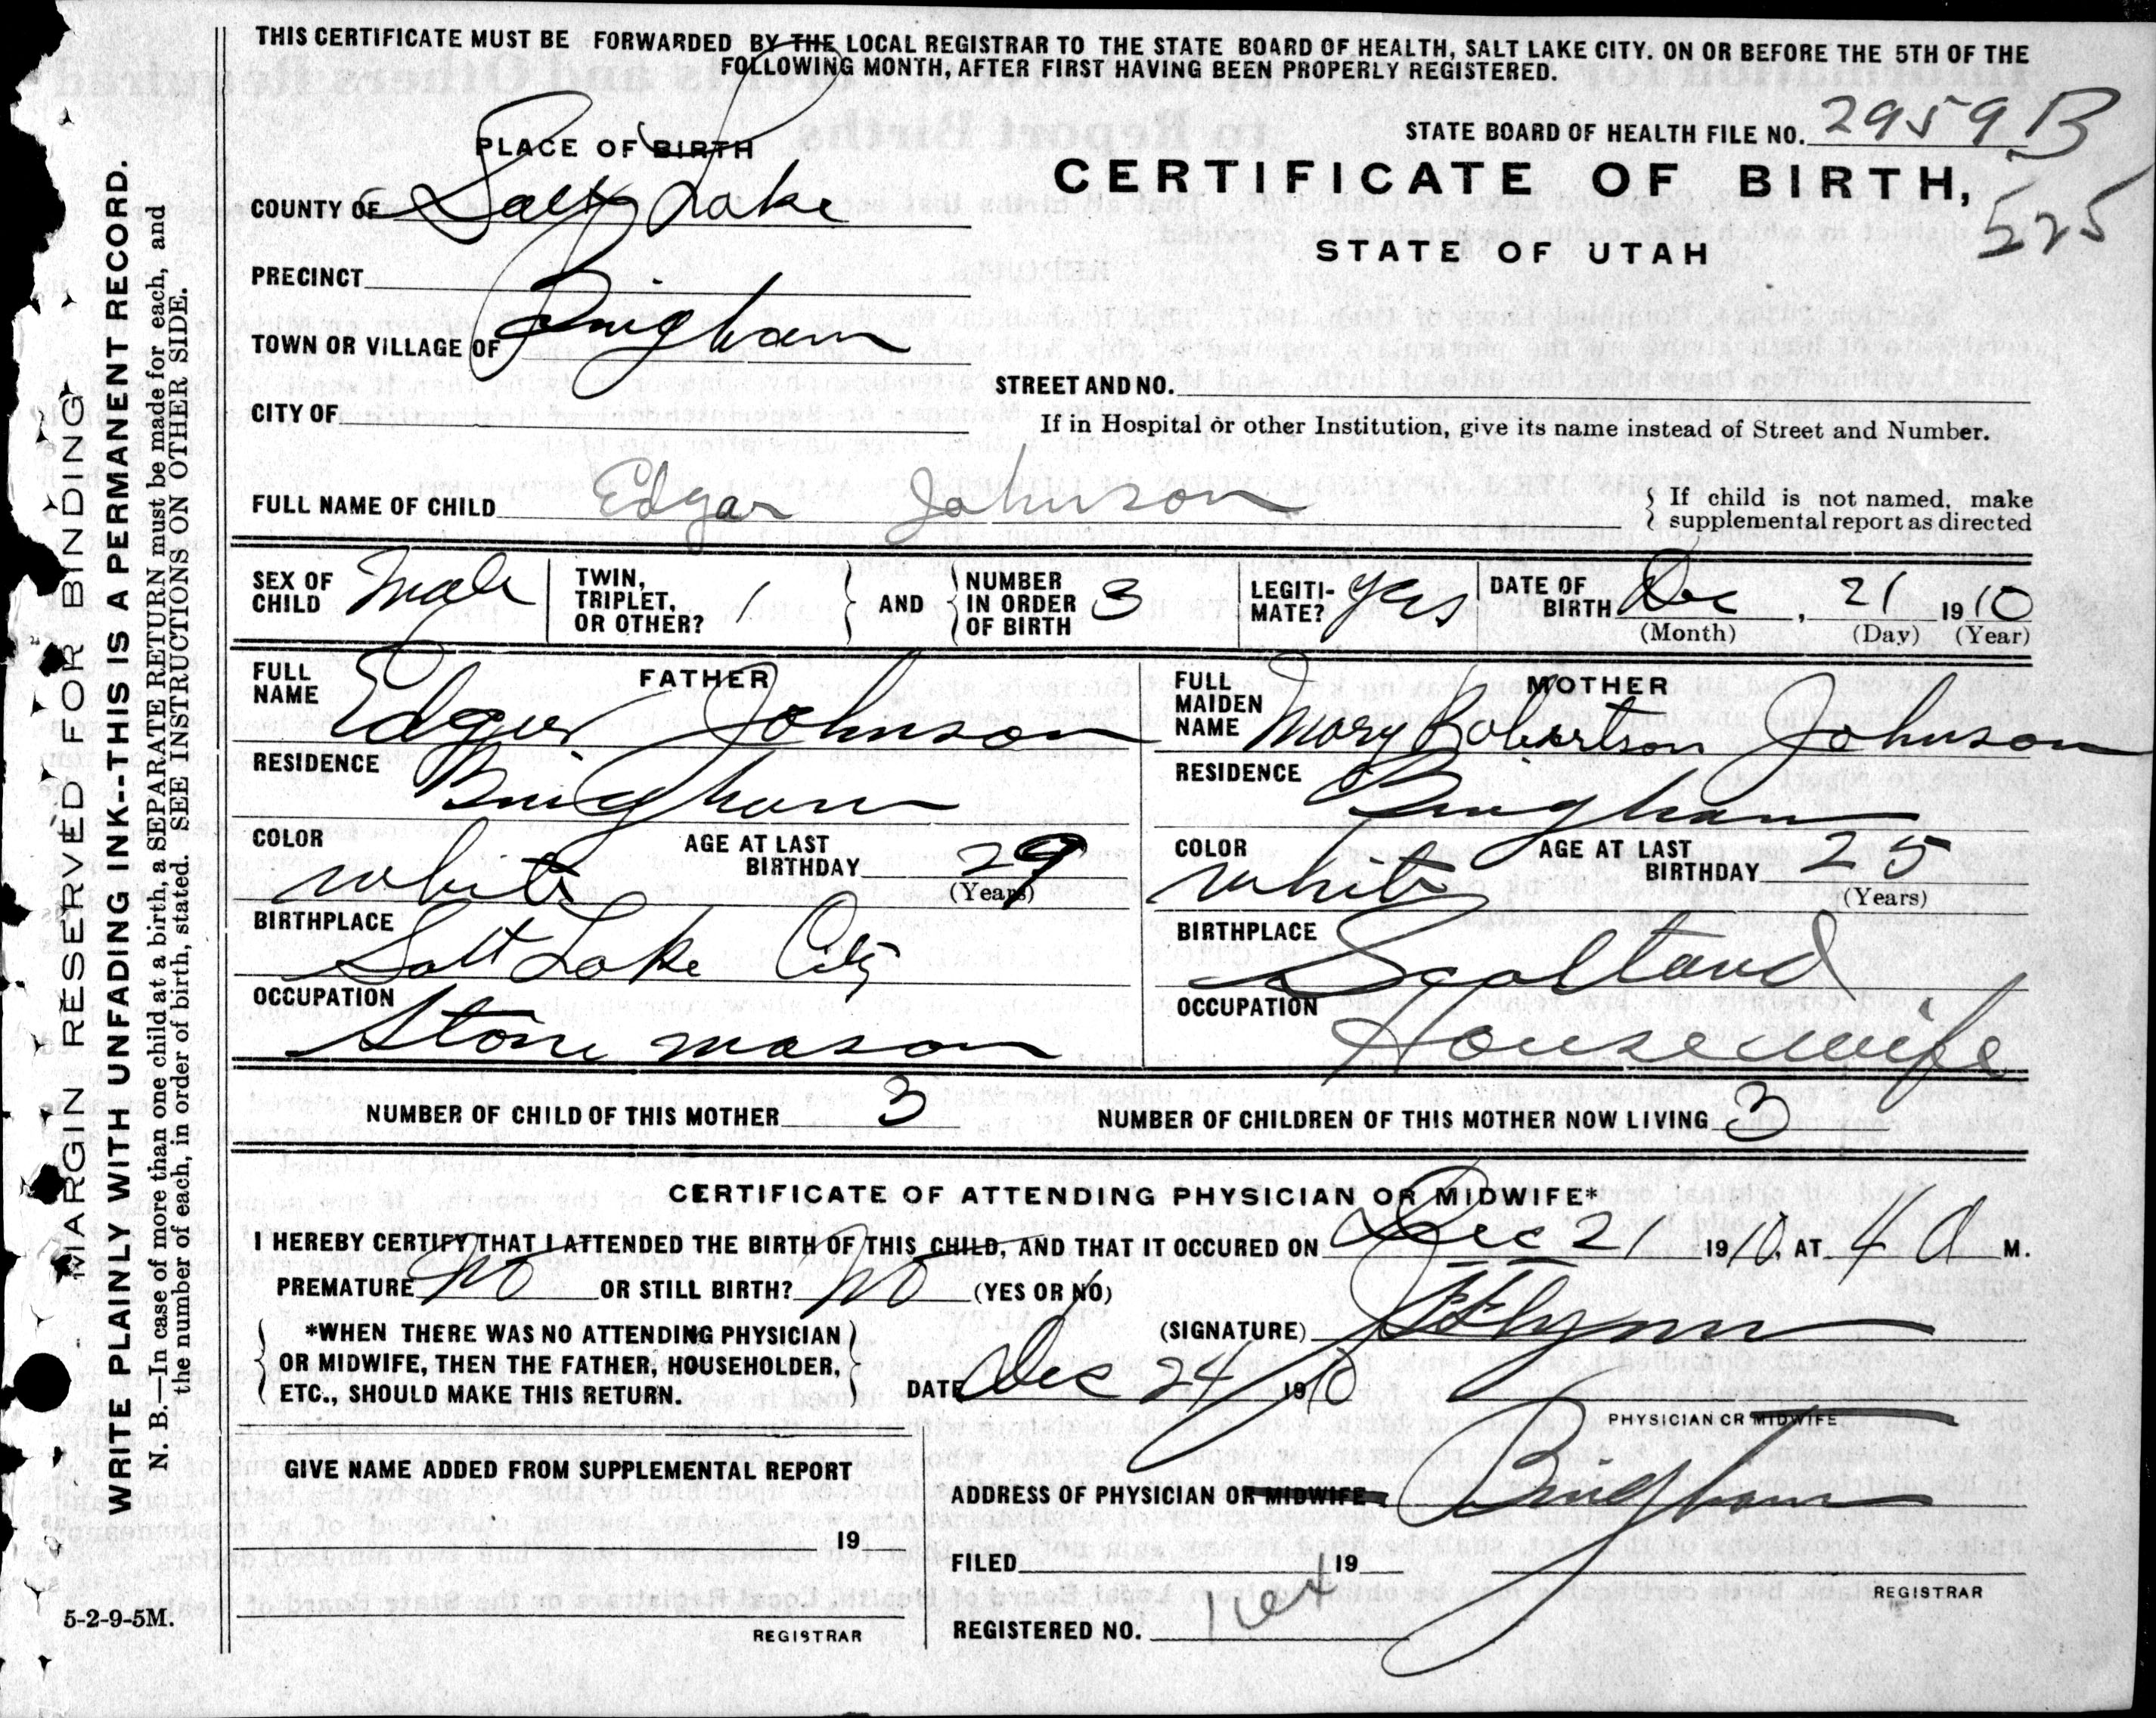 THIS CERTIFICATE MUST BE FORWARDED BY THE LOCAL REGISTRAR TO THE STATE BOARD OF HEALTH, SALT LAKE CITY. ON OR BEFORE THE 5TH OF THE
FOLLOWING MONTH, AFTER FIRST HAVING BEEN PROPERLY REGISTERED.
STATE BOARD OF HEALTH FILE NO. 2959 B
PLACE OF BIRTH
CERTIFICATE OF BIRTH,
525
COUNTY OF Salt Lake
STATE OF UTAH
PRECINCT
TOWN OR VILLAGE OF Bingham
STREET AND NO.
CITY OF
If in Hospital or other Institution, give its name instead of Street and Number.
FULL NAME OF CHILD Edgar Johnson { If child is not named, make
supplemental report as directed
SEX OF CHILD Male TWIN, TRIPLET, OR OTHER? 1 } AND { NUMBER IN ORDER OF BIRTH 3 LEGITI-MATE? Yes DATE OF BIRTH Dec, 21 1910
(Month) (Day) (Year)
FATHER
FULL NAME Edger Johnson
RESIDENCE Bingham
COLOR White AGE AT LAST BIRTHDAY 29
(Years)
BIRTHPLACE Salt Lake City
OCCUPATION Stone mason
MOTHER
FULL MAIDEN NAME Mary Robertson Johnson
RESIDENCE Bingham
COLOR White AGE AT LAST BIRTHDAY 25
(Years)
BIRTHPLACE Scoltand
OCCUPATION Housewife
NUMBER OF CHILD OF THIS MOTHER 3 NUMBER OF CHILDREN OF THIS MOTHER NOW LIVING 3
CERTIFICATE OF ATTENDING PHYSICIAN OR MIDWIFE*
I HEREBY CERTIFY THAT I ATTENDED THE BIRTH OF THIS CHILD, AND THAT IT OCCURED ON Dec 21 1910, AT 4 A M.
PREMATURE No OR STILL BIRTH? No (YES OR NO)
*WHEN THERE WAS NO ATTENDING PHYSICIAN
OR MIDWIFE, THEN THE FATHER, HOUSEHOLDER,
ETC., SHOULD MAKE THIS RETURN.
(SIGNATURE) Flynn
DATE Dec 24 1910
PHYSICIAN OR MIDWIFE
GIVE NAME ADDED FROM SUPPLEMENTAL REPORT
19
REGISTRAR
ADDRESS OF PHYSICIAN OR MIDWIFE Bingham
FILED 19
REGISTRAR
REGISTERED NO.
MARGIN RESERVED FOR BINDING
WRITE PLAINLY WITH UNFADING INK--THIS IS A PERMANENT RECORD.
N. B.—In case of more than one child at a birth, a SEPARATE RETURN must be made for each, and
the number of each, in order of birth, stated. SEE INSTRUCTIONS ON OTHER SIDE.
5-2-9-5M.